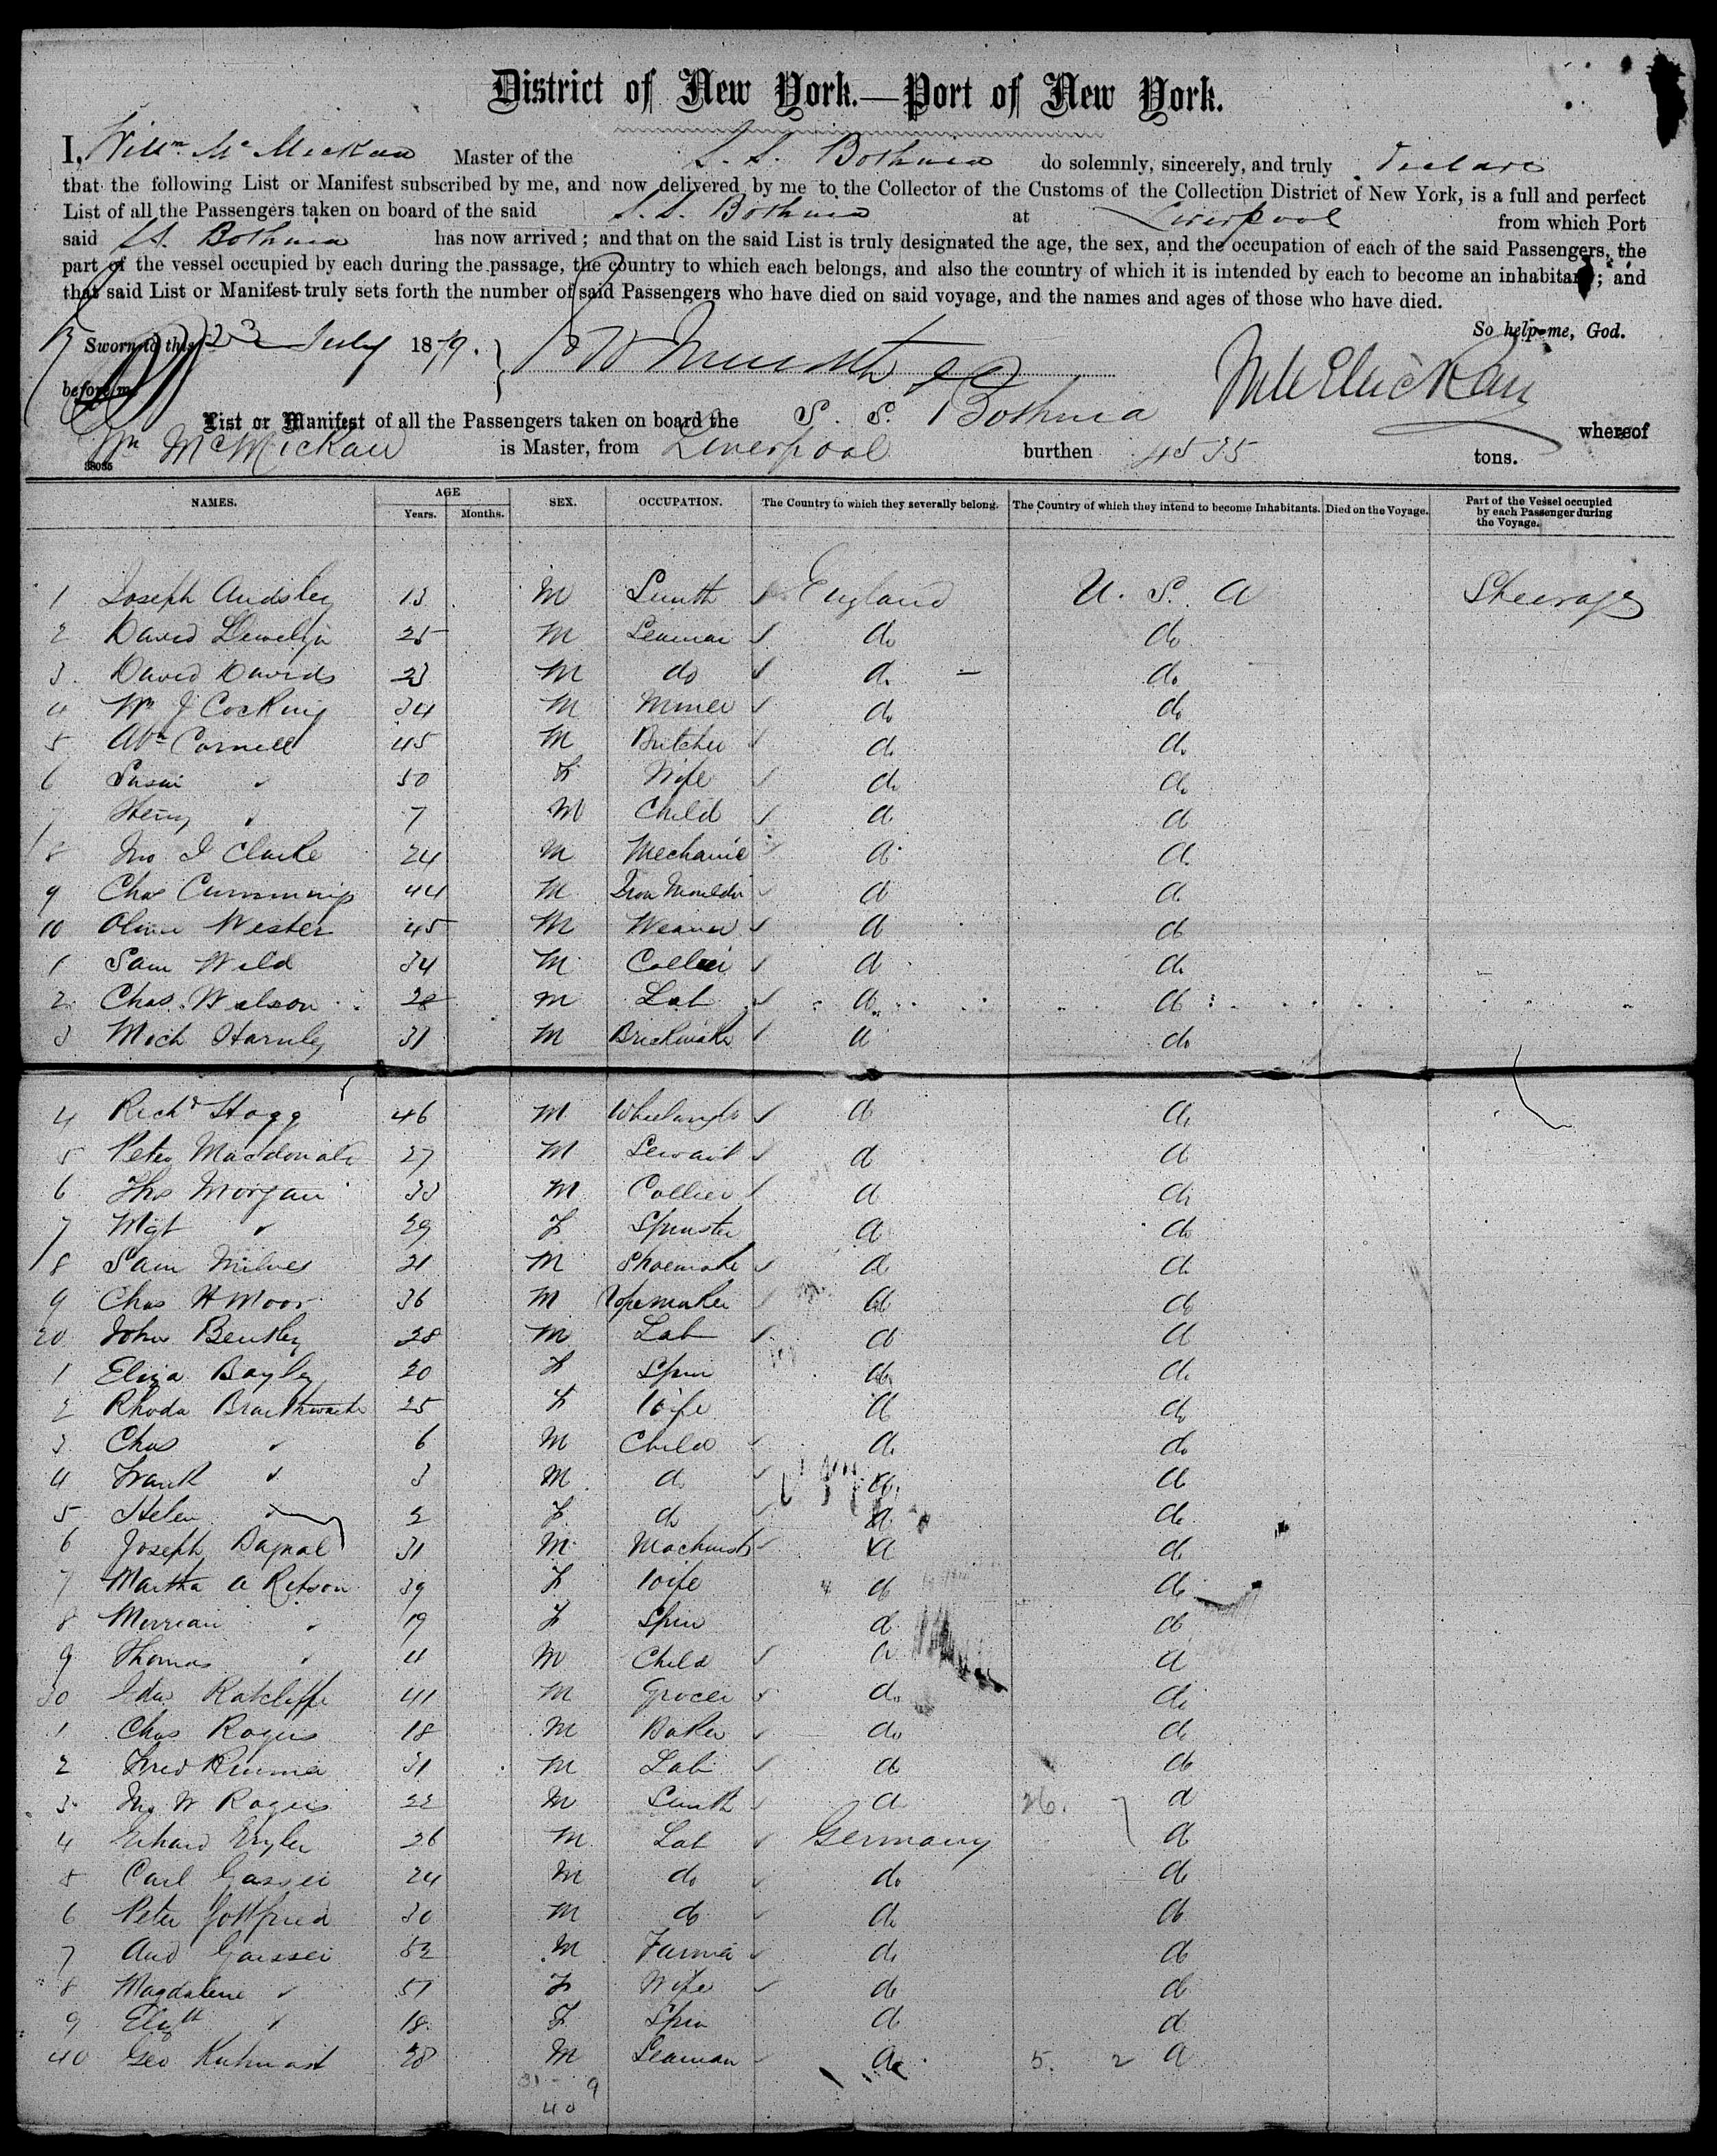 District of New York.—Port of New York.
I, Willm McMickan Master of the S. S. Bothnia do solemnly, sincerely, and truly declare
that the following List or Manifest subscribed by me, and now delivered by me to the Collector of the Customs of the Collection District of New York, is a full and perfect
List of all the Passengers taken on board of the said S. S. Bothnia at Liverpool from which Port
said SS. Bothnia has now arrived; and that on the said List is truly designated the age, the sex, and the occupation of each of the said Passengers, the
part of the vessel occupied by each during the passage, the country to which each belongs, and also the country of which it is intended by each to become an inhabitant; and
that said List or Manifest truly sets forth the number of said Passengers who have died on said voyage, and the names and ages of those who have died.
So help me, God.
Sworn to this 23 July 1879.
before me
WMcMickan
List or Manifest of all the Passengers taken on board the S. S. Bothnia whereof
Wm McMickan is Master, from Liverpool burthen 4535 tons.
38035
NAMES. AGE Years. Months. SEX. OCCUPATION. The Country to which they severally belong. The Country of which they intend to become Inhabitants. Died on the Voyage. Part of the Vessel occupied by each Passenger during the Voyage.
1 Joseph Audsley 13 M Smith England U. S. A Steerage
2 David Llewelyn 25 M Seaman do do
3 David Davids 23 M do do do
4 Wm J Cocking 34 M Miner do do
5 Abm Cornell 45 M Butcher do do
6 Susan " 50 F Wife do do
7 Henry " 7 M Child do do
8 Jno I Clarke 24 M Mechanic do do
9 Chas Cummings 44 M Iron Moulder do do
10 Oliver Wester 45 M Weaver do do
1 Sam Wild 34 M Collier do do
2 Chas. Wilson 28 M Lab do do
3 Mich Harnley 31 M Brickmaker do do
4 Richd Hogg 46 M Wheelwright do do
5 Peter Macdonald 27 M Servant do do
6 Ths Morgan 33 M Collier do do
7 Mgt " 29 F Spinster do do
8 Sam Milnes 21 M Shoemaker do do
9 Chas H Moor 36 M Ropemaker do do
20 John Bentley 28 M Lab do do
1 Eliza Bayley 20 F Spin do do
2 Rhoda Braithwaite 25 F Wife do do
3 Chas " 6 M Child do do
4 Frank " 3 M do do do
5 Helen " 2 F do do do
6 Joseph Bagnal 31 M Machinist do do
7 Martha A Ritson 39 F Wife do do
8 Mirriam " 19 F Spin do do
9 Thomas " 11 M Child do do
30 Edw Ratcliffe 41 M Grocer do do
1 Chas Rogers 18 M Baker do do
2 Fred 31 M Lab do do
3 W Rogers 22 M Smith do 26. do
4 26 M Lab Germany do
5 Carl Gasser 24 M do do do
6 Peter Gottfried 30 M do do do
7 And Gasser 52 M Farmer do do
8 Magdalene " 51 F Wife do do
9 Elizth " 18 F Spin do do
40 Geo 28 M Seaman do 5. 2 do
31 - 9
40